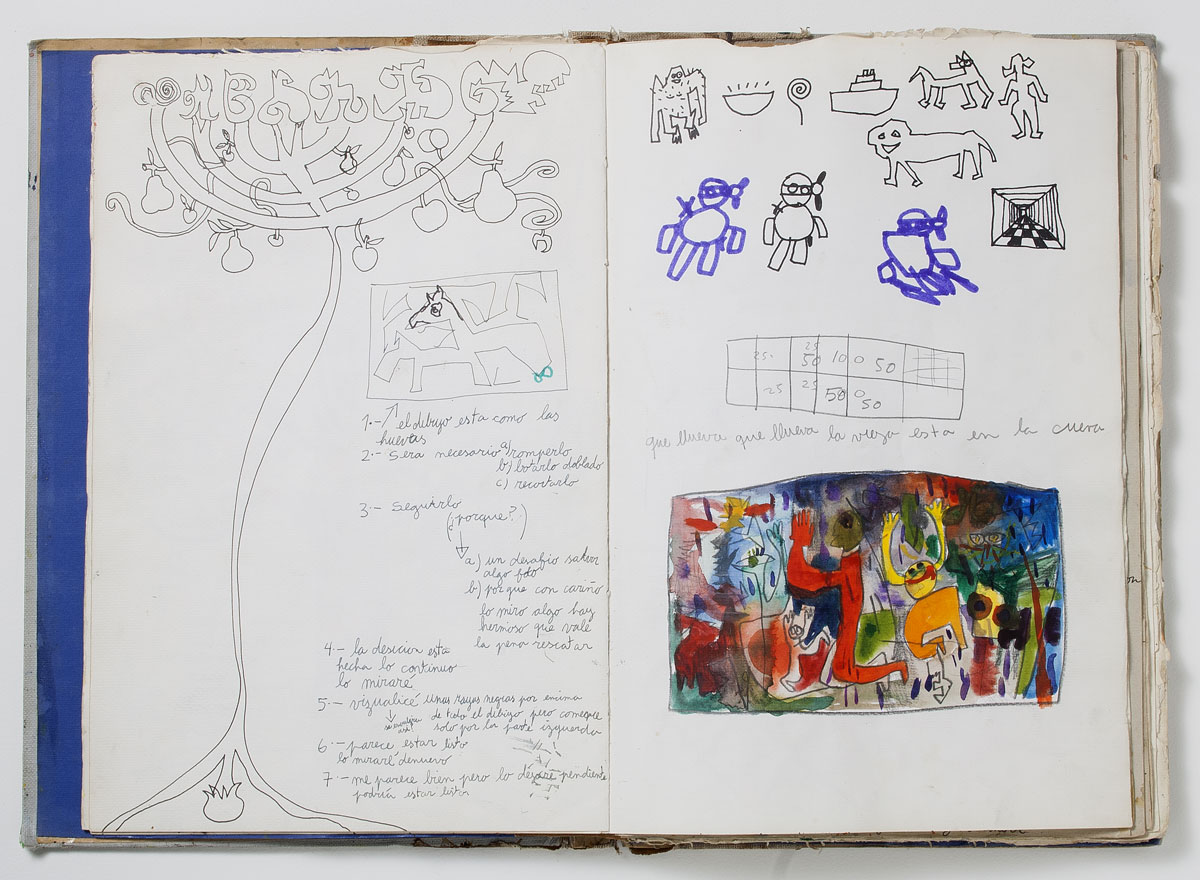 1.- el dibujo esta como las
huevas
2.- Sera necesario a) romperlo
b) botarlo doblado
c) recortarlo
3.- Seguirlo
(¿porque?)
a) un desafio salvar
algo feo
b) porque con cariño
lo miro algo hay
hermoso que vale
la pena rescatar
4.- la desicion esta
hecha lo continuo
lo miraré
5.- vizualicé unas rayas negras por encima
de todo el dibujo pero comencé
solo por la parte izquierda
6.- parece estar listo
lo miraré denuevo
7.- me parece bien pero lo dejaré pendiente
podria estar listo
25 25 50 10 0 50
25 25 50 0 50
que llueva que llueva la vieja esta en la cueva